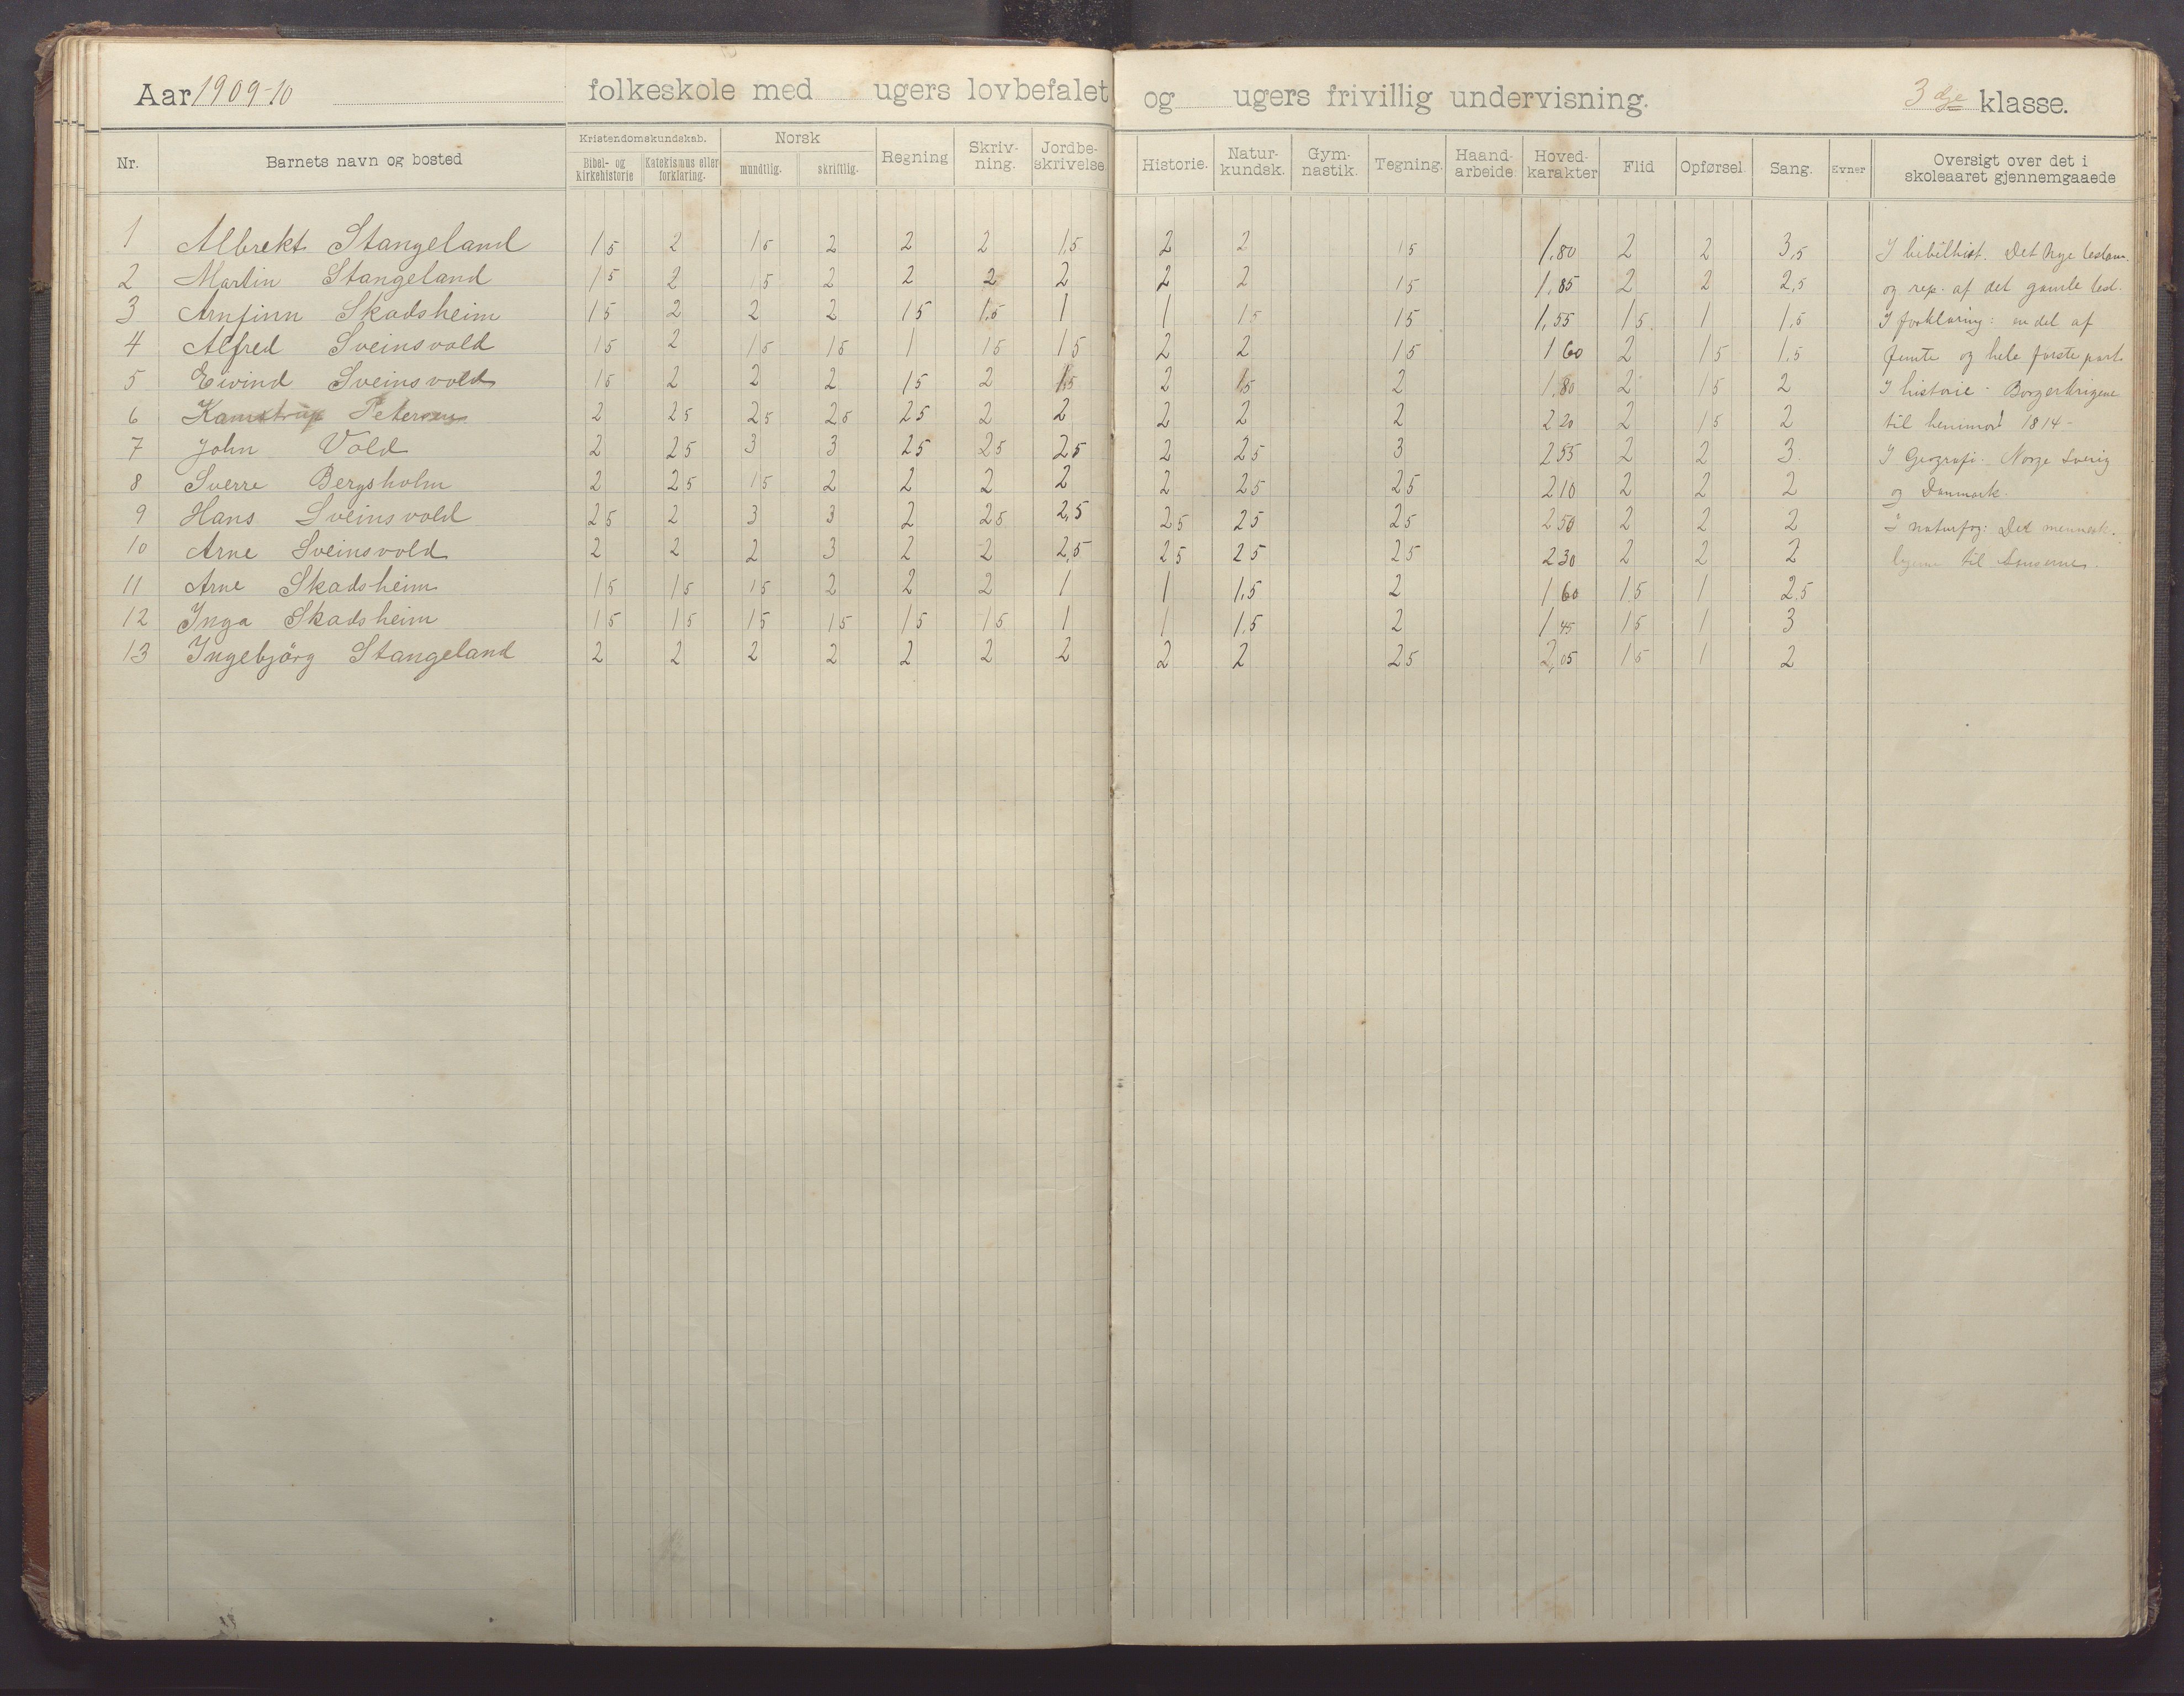 Aar 1909-10 folkeskole med ugers lovbefalet og ugers frivillig undervisning. 3dje klasse.
Nr. Barnets navn og bosted Kristendomskundskab. Bibel- og Kirkehistorie Katekismus eller forklaring. Norsk mundtlig. skriftlig. Regning Skriv-ning. Jordbe-skrivelse Historie. Natur-kundsk. Gym-nastik. Tegning. Haand-arbeide Hoved-karakter Flid Opførsel. Sang. Evner Oversigt over det i skoleaaret gjennemgaaede
1 Albrekt Stangeland 15 2 15 2 2 2 1,5 2 2 15 1,80 2 2 3,5 I bibelhist. Det Nye testam.
2 Martin Stangeland 15 2 15 2 2 2 2 2 2 15 1,85 2 2 2,5 og rep. af det gamle test.
3 Arnfinn Skadsheim 15 2 2 2 15 1,5 1 1 15 15 1,55 15 1 1,5 I forklaring: en del af
4 Alfred Sveinsvold 15 2 15 15 1 15 15 2 2 15 1 60 2 15 1,5 femte og hele første part
5 Eivind Sveinsvold 15 2 2 2 15 2 1,5 2 15 2 1,80 2 15 2 I historie Borgerkrigene
6 Kamstrup Petersen 2 25 25 25 25 2 2 2 2 2 2 20 2 15 2 til henimod 1814 -
7 John Vold 2 25 3 3 25 25 2,5 2 25 3 2 55 2 2 3 I Geografi. Norge Sverig
8 Sverre Bergsholm 2 25 15 2 2 2 2 2 25 25 2 10 2 2 2 og Danmark.
9 Hans Sveinsvold 25 2 3 3 2 25 2,5 25 25 25 2 50 2 2 2 I naturfag: Det mennesk.
10 Arne Sveinsvold 2 2 2 3 2 2 2,5 25 25 25 2 30 2 2 2 til
11 Arne Skadsheim 15 15 15 2 2 2 1 1 1,5 2 1 60 15 1 2,5
12 Inga Skadsheim 15 15 15 15 15 15 1 1 1,5 2 1 45 15 1 3
13 Ingebjörg Stangeland 2 2 2 2 2 2 2 2 2 25 2,05 15 1 2